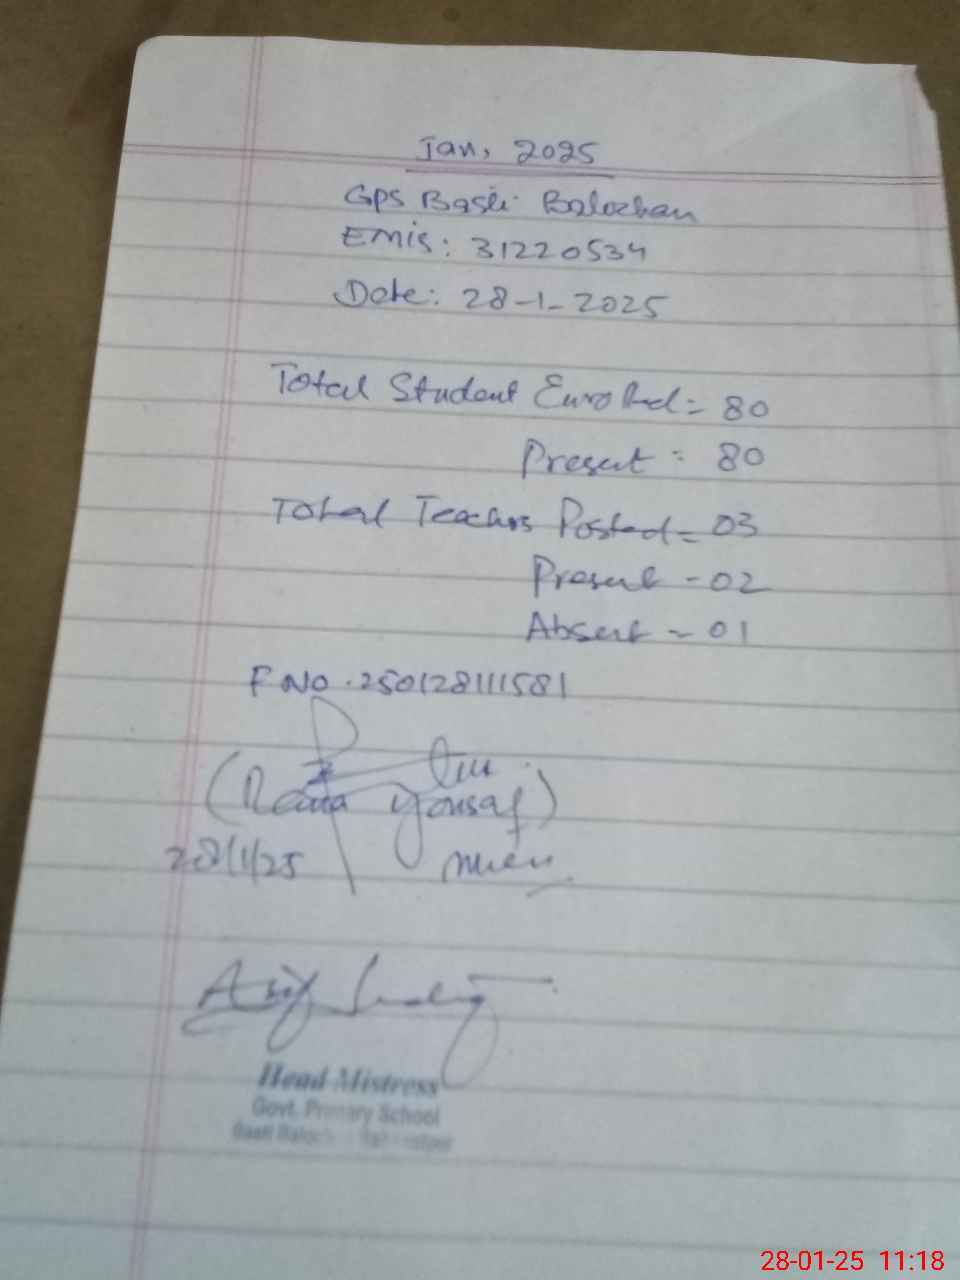 Jan, 2025
GPS Basti Balochan
EMIS: 31220534
Date: 28-1-2025
Total Student Enrolled = 80
Present = 80
Total Teachers Posted = 03
Present - 02
Absent - 01
F.No. 250128111581
(Rana Yousaf)
28/1/25
Asif
Head Mistress
Govt. Primary School
Basti
28-01-25 11:18